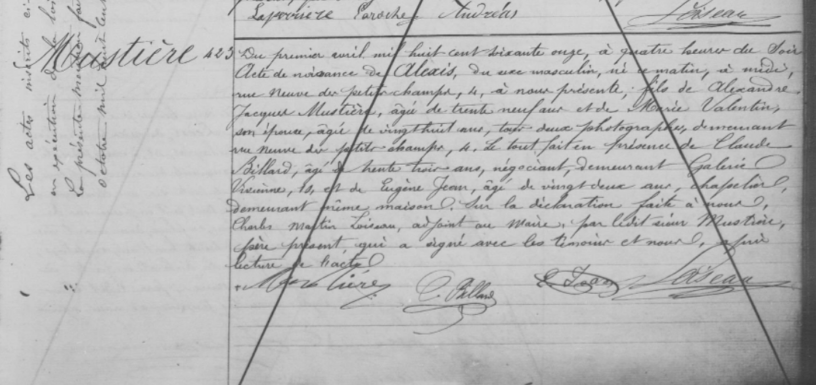 Laprovière Paroche Andréas Loiseau
Les actes inscrits ci
en exécution de la loi
Le présente mention fai
octobre mil
Mustière 423
Du premier avril mil huit cent soixante onze, à quatre heures du Soir
Acte de naissance de Alexis, du sexe masculin, né ce matin, à midi,
rue Neuve des petits champs, 4, à nous présenté; fils de Alexandre
Jacques Mustière, âgé de trente neuf ans et de Marie Valentin,
son épouse, âgée de vingt huit ans, tous deux photographes, demeurant
rue neuve des petits champs, 4. Le tout fait en présence de Claude
Billard, âgé de trente trois ans, négociant, demeurant Galerie
Vivienne, 13, et de Eugène Jean, âgé de vingt deux ans, chapelier,
demeurant même maison. Sur la déclaration faite à nous,
Charles Martin Loiseau, adjoint au Maire, par ledit sieur Mustière,
père présent, qui a signé avec les témoins et nous, après
lecture de l'acte
Mustière C. Billard E. Jean Loiseau